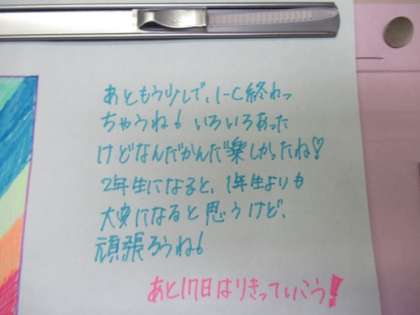 あともう少しで、1-C終わっ
ちゃうね! いろいろあった
けどなんだかんだ楽しかったね♡
2年生になると、1年生よりも
大変になると思うけど、
頑張ろうね!
あと17日はりきっていこう!